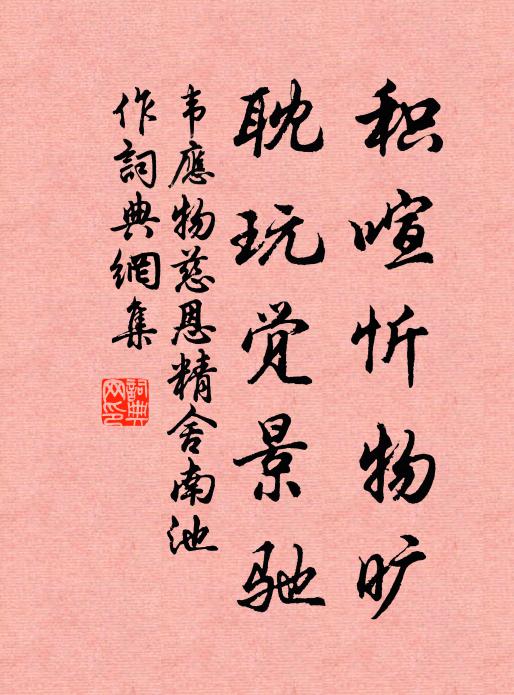 积喧忻物旷
耽玩觉景驰
韦應物慈恩精舍南池
作詞典網集
詞典
网印